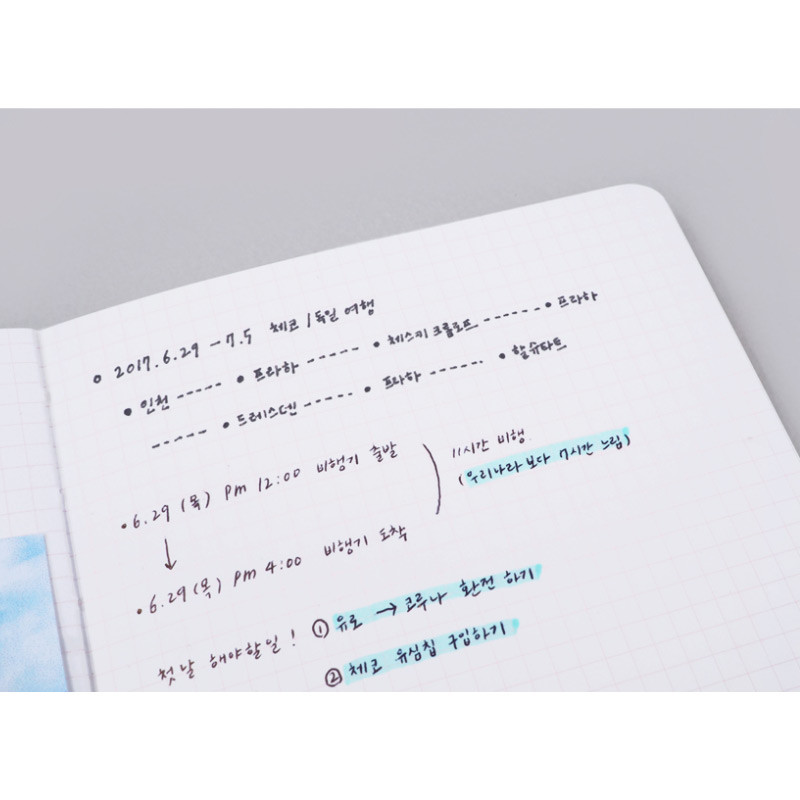 2017.6.29 → 7.5 체코 / 독일 여행
• 인천 ----- • 프라하 ----- • 체스키 크룸로프 ------ • 프라하
------ • 드레스덴 ----- • 프라하 ------ • 할슈타트
• 6.29 (목) pm 12:00 비행기 출발
11시간 비행
(우리나라 보다 7시간 느림)
↓
• 6.29 (목) pm 4:00 비행기 도착
첫날 해야할일! ① 유로 → 코루나 환전 하기
② 체코 유심칩 구입하기